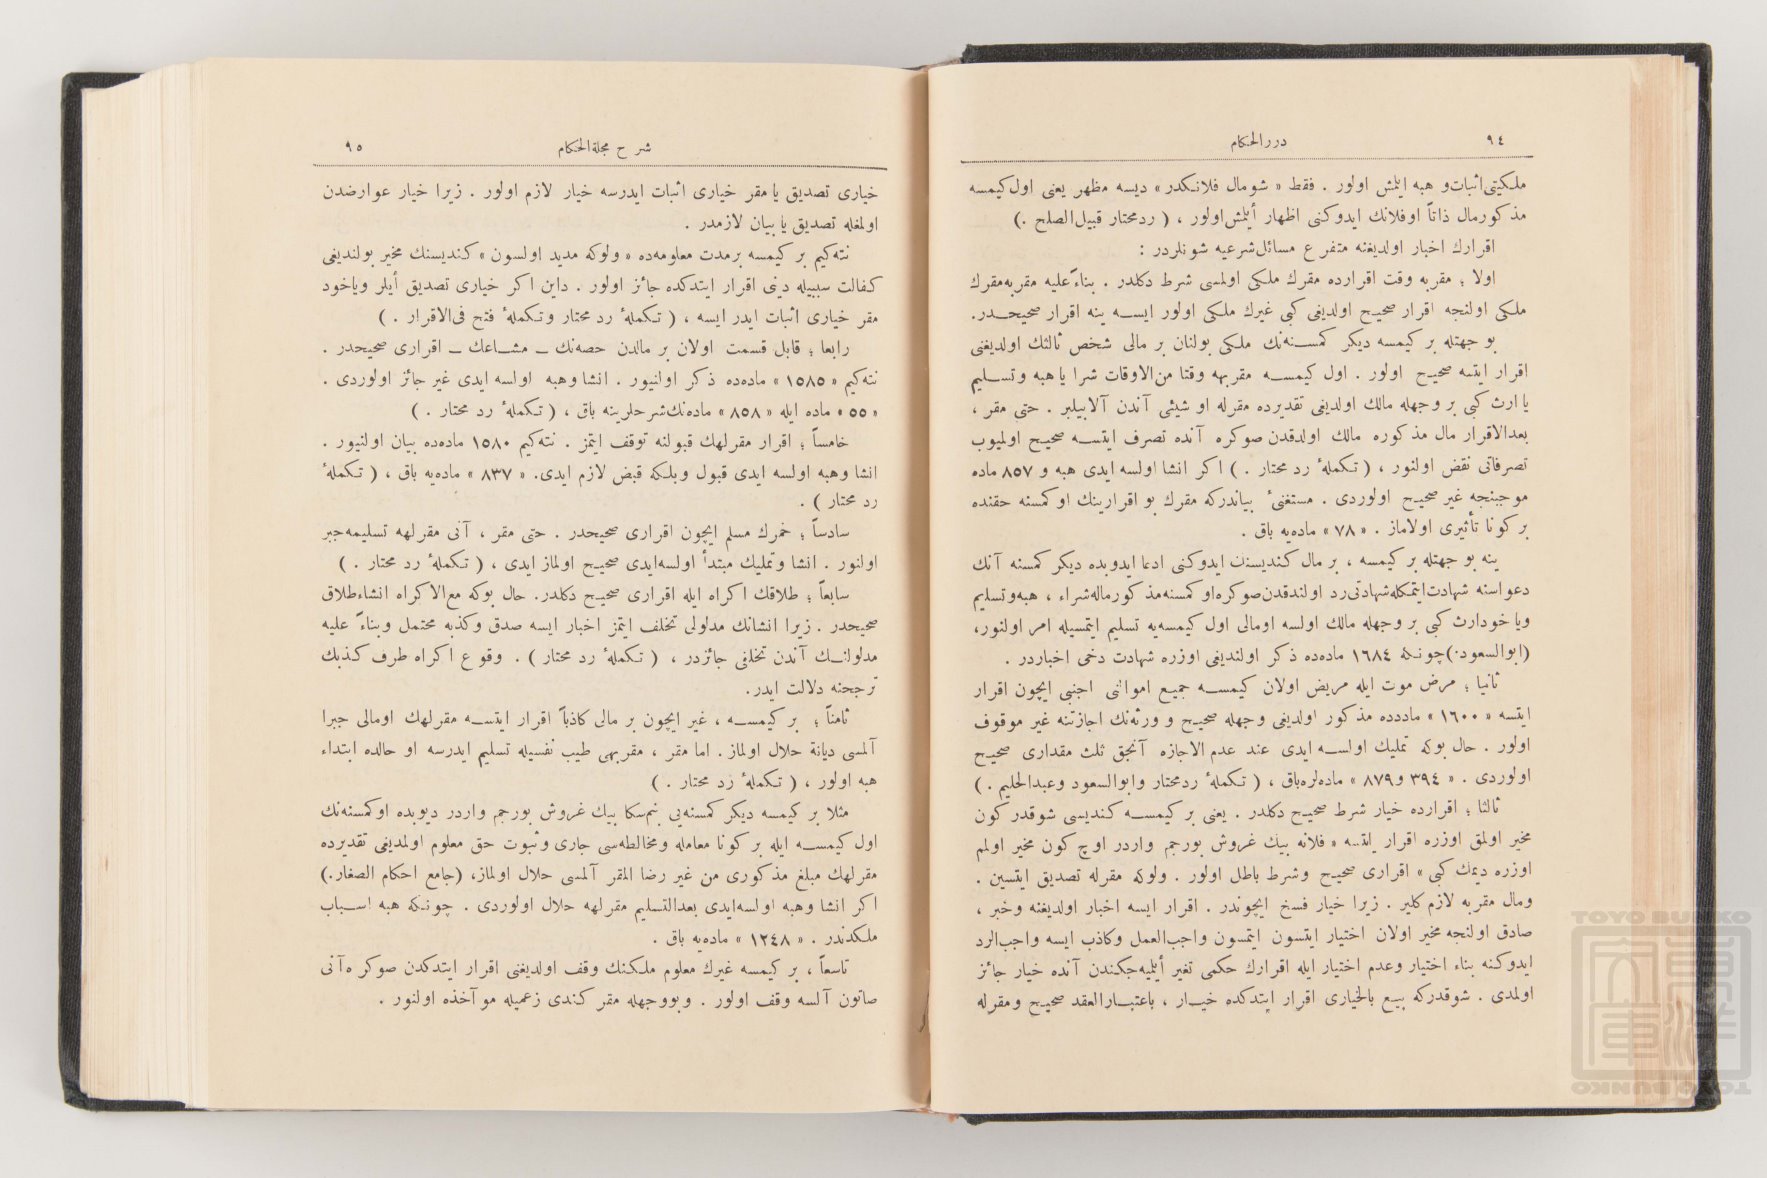 ٩٤
دررالحكام
ملكيتی‌اثبات‌و هبه ايلمش اولور . فقط « شومال فلانكدر » ديسه مظهر يعنی اول‌كيمسه
مذكورمال ذاتاً اوفلانك ايدوكنی اظهار أيلمش‌اولور ، ( ردمختار قبيل‌الصلح .)
اقرارك اخبار اولديغنه متفرع مسائل‌شرعيه شونلردر :
اولا ؛ مقربه وقت اقرارده مقرك ملكی اولمسی شرط دكلدر . بناءًعليه مقربه‌مقرك
ملكی اولنجه اقرار صحيح اولديغی كبی غيرك ملكی اولور ايسه ينه اقرار صحيحدر.
بو جهتله بر كيمسه ديكر كمسنه‌نك ملكی بولنان بر مالی شخص ثالثك اولديغنی
اقرار ايتسه صحيح اولور . اول كيمسه مقربهه وقتا من‌الاوقات شرا يا هبه وتسليم
يا ارث كبی بر وجهله مالك اولديغی تقديرده مقرله او شيئی آندن آلابيلبر . حتی مقر ،
بعدالاقرار مال مذكوره مالك اولدقدن صوكره آنده تصرف ايتسه صحيح اولميوب
تصرفاتی نقض اولنور ، ( تكملهٔ رد محتار . ) اكر انشا اولسه ايدی هبه و ٨٥٧ ماده
موجبنجه غير صحيح اولوردی . مستغنیٔ بياندركه مقرك بو اقرارينك او كمسنه حقنده
بر كونا تأثيری اولاماز . « ٧٨ » ماده‌يه باق .
ينه بو جهتله بر كيمسه ، بر مال كنديسنك ايدوكنی ادعا ايدوبده ديكر كمسنه آنك
دعواسنه شهادت‌ايتمكله‌شهادتی‌رد اولندقدن‌صوكره‌او كمسنه‌مذكورماله‌شراء ، هبه‌وتسليم
ويا خودارث كبی بر وجهله مالك اولسه اومالی اول كيمسه‌يه تسليم ايتمسيله امر اولنور،
(ابوالسعود.)چونكه ١٦٨٤ ماده‌ده ذكر اولنديغی اوزره شهادت دخی اخباردر .
ثانيا ؛ مرض موت ايله مريض اولان كيمسه جميع اموالنی اجنبی ايچون اقرار
ايتسه « ١٦٠٠ » مادده‌ده مذكور اولديغی وجهله صحيح و ورثه‌نك اجازتنه غير موقوف
اولور . حال بوكه تمليك اولسه ايدی عند عدم الاجازه آنجق ثلث مقداری صحيح
اولوردی . « ٣٩٤ و ٨٧٩ » ماده‌لره‌باق ، ( تكملهٔ ردمختار وابوالسعود وعبدالحليم . )
ثالثا ؛ اقرارده خيار شرط صحيح دكلدر . يعنی بر كيمسه كنديسی شوقدركون
مخير اولمق اوزره اقرار ايتسه « فلانه بيك غروش بورجم واردر اوچ كون مخير اولمم
اوزره ديمك كبی » اقراری صحيح وشرط باطل اولور . ولوكه مقرله تصديق ايتسين .
ومال مقربه لازم كلير . زيرا خيار فسخ ايچوندر . اقرار ايسه اخبار اولديغنه وخبر ،
صادق اولنجه مخير اولان اختيار ايتسون ايتمسون واجب‌العمل وكاذب ايسه واجب‌الرد
ايدوكنه بناء اختيار وعدم اختيار ايله اقرارك حكمی تغير أيليه‌جكندن آنده خيار جائز
اولمدی . شوقدركه بيع بالخياری اقرار ايتدكده خيار ، باعتبارالعقد صحيح ومقرله
شرح مجلةالحكام
٩٥
خياری تصديق يا مقر خياری اثبات ايدرسه خيار لازم اولور . زيرا خيار عوارضدن
اولمغله تصديق يا بيان لازمدر .
نته‌كيم بر كيمسه برمدت معلومه‌ده « ولوكه مديد اولسون » كنديسنك مخير بولنديغی
كفالت سببيله دينی اقرار ايتدكده جائز اولور . داين اكر خياری تصديق أيلر وياخود
مقر خياری اثبات ايدر ايسه ، ( تكملهٔ رد محتار وتكملهٔ فتح فی‌الاقرار . )
رابعا ؛ قابل قسمت اولان بر مالدن حصه‌نك — مشاعك — اقراری صحيحدر .
نته‌كيم « ١٥٨٥ » ماده‌ده ذكر اولنيور . انشا وهبه اولسه ايدی غير جائز اولوردی .
« ٥٥ » ماده ايله « ٨٥٨ » ماده‌نك‌شرحلرينه باق ، ( تكملهٔ رد محتار . )
خامساً ؛ اقرار مقرلهك قبولنه توقف ايتمز . نته‌كيم ١٥٨٠ ماده‌ده بيان اولنيور .
انشا وهبه اولسه ايدی قبول وبلكه قبض لازم ايدی. « ٨٣٧ » ماده‌يه باق ، ( تكملهٔ
رد محتار ) .
سادساً ؛ خمرك مسلم ايچون اقراری صحيحدر . حتی مقر ، آنی مقرلهه تسليمه‌جبر
اولنور . انشا وتمليك مبتدأ اولسه‌ايدی صحيح اولماز ايدی ، ( تكملهٔ رد محتار . )
سابعاً ؛ طلاقك اكراه ايله اقراری صحيح دكلدر. حال بوكه مع‌الاكراه انشاءطلاق
صحيحدر . زيرا انشانك مدلولی تخلف ايتمز اخبار ايسه صدق وكذبه محتمل وبناءً عليه
مدلولنك آندن تخلفی جائزدر ، ( تكملهٔ رد محتار ) . وقوع اكراه طرف كذبك
ترجحنه دلالت ايدر.
ثامناً ؛ بر كيمسه ، غير ايچون بر مالی كاذباً اقرار ايتسه مقرلهك اومالی جبرا
آلمسی ديانة حلال اولماز. اما مقر ، مقربهی طيب نفسيله تسليم ايدرسه او حالده ابتداء
هبه اولور ، ( تكملهٔ رد محتار . )
مثلا بر كيمسه ديكر كمسنه‌يی بنم‌سكا بيك غروش بورجم واردر ديوبده اوكمسنه‌نك
اول كيمسه ايله بر كونا معامله ومخالطه‌سی جاری وثبوت حق معلوم اولمديغی تقديرده
مقرلهك مبلغ مذكوری من غير رضا المقر آلمسی حلال اولماز، (جامع احكام الصغار.)
اكر انشا وهبه اولسه‌ايدی بعدالتسليم مقرلهه حلال اولوردی . چونكه هبه اسباب
ملكدندر . « ١٢٤٨ » ماده‌يه باق .
تاسعاً ، بر كيمسه غيرك معلوم ملكنك وقف اولديغنی اقرار ايتدكدن صوكره آنی
صاتون آلسه وقف اولور . وبووجهله مقر كندی زعميله موآخذه اولنور .
TOYO BUNKO
TOYO BUNKO